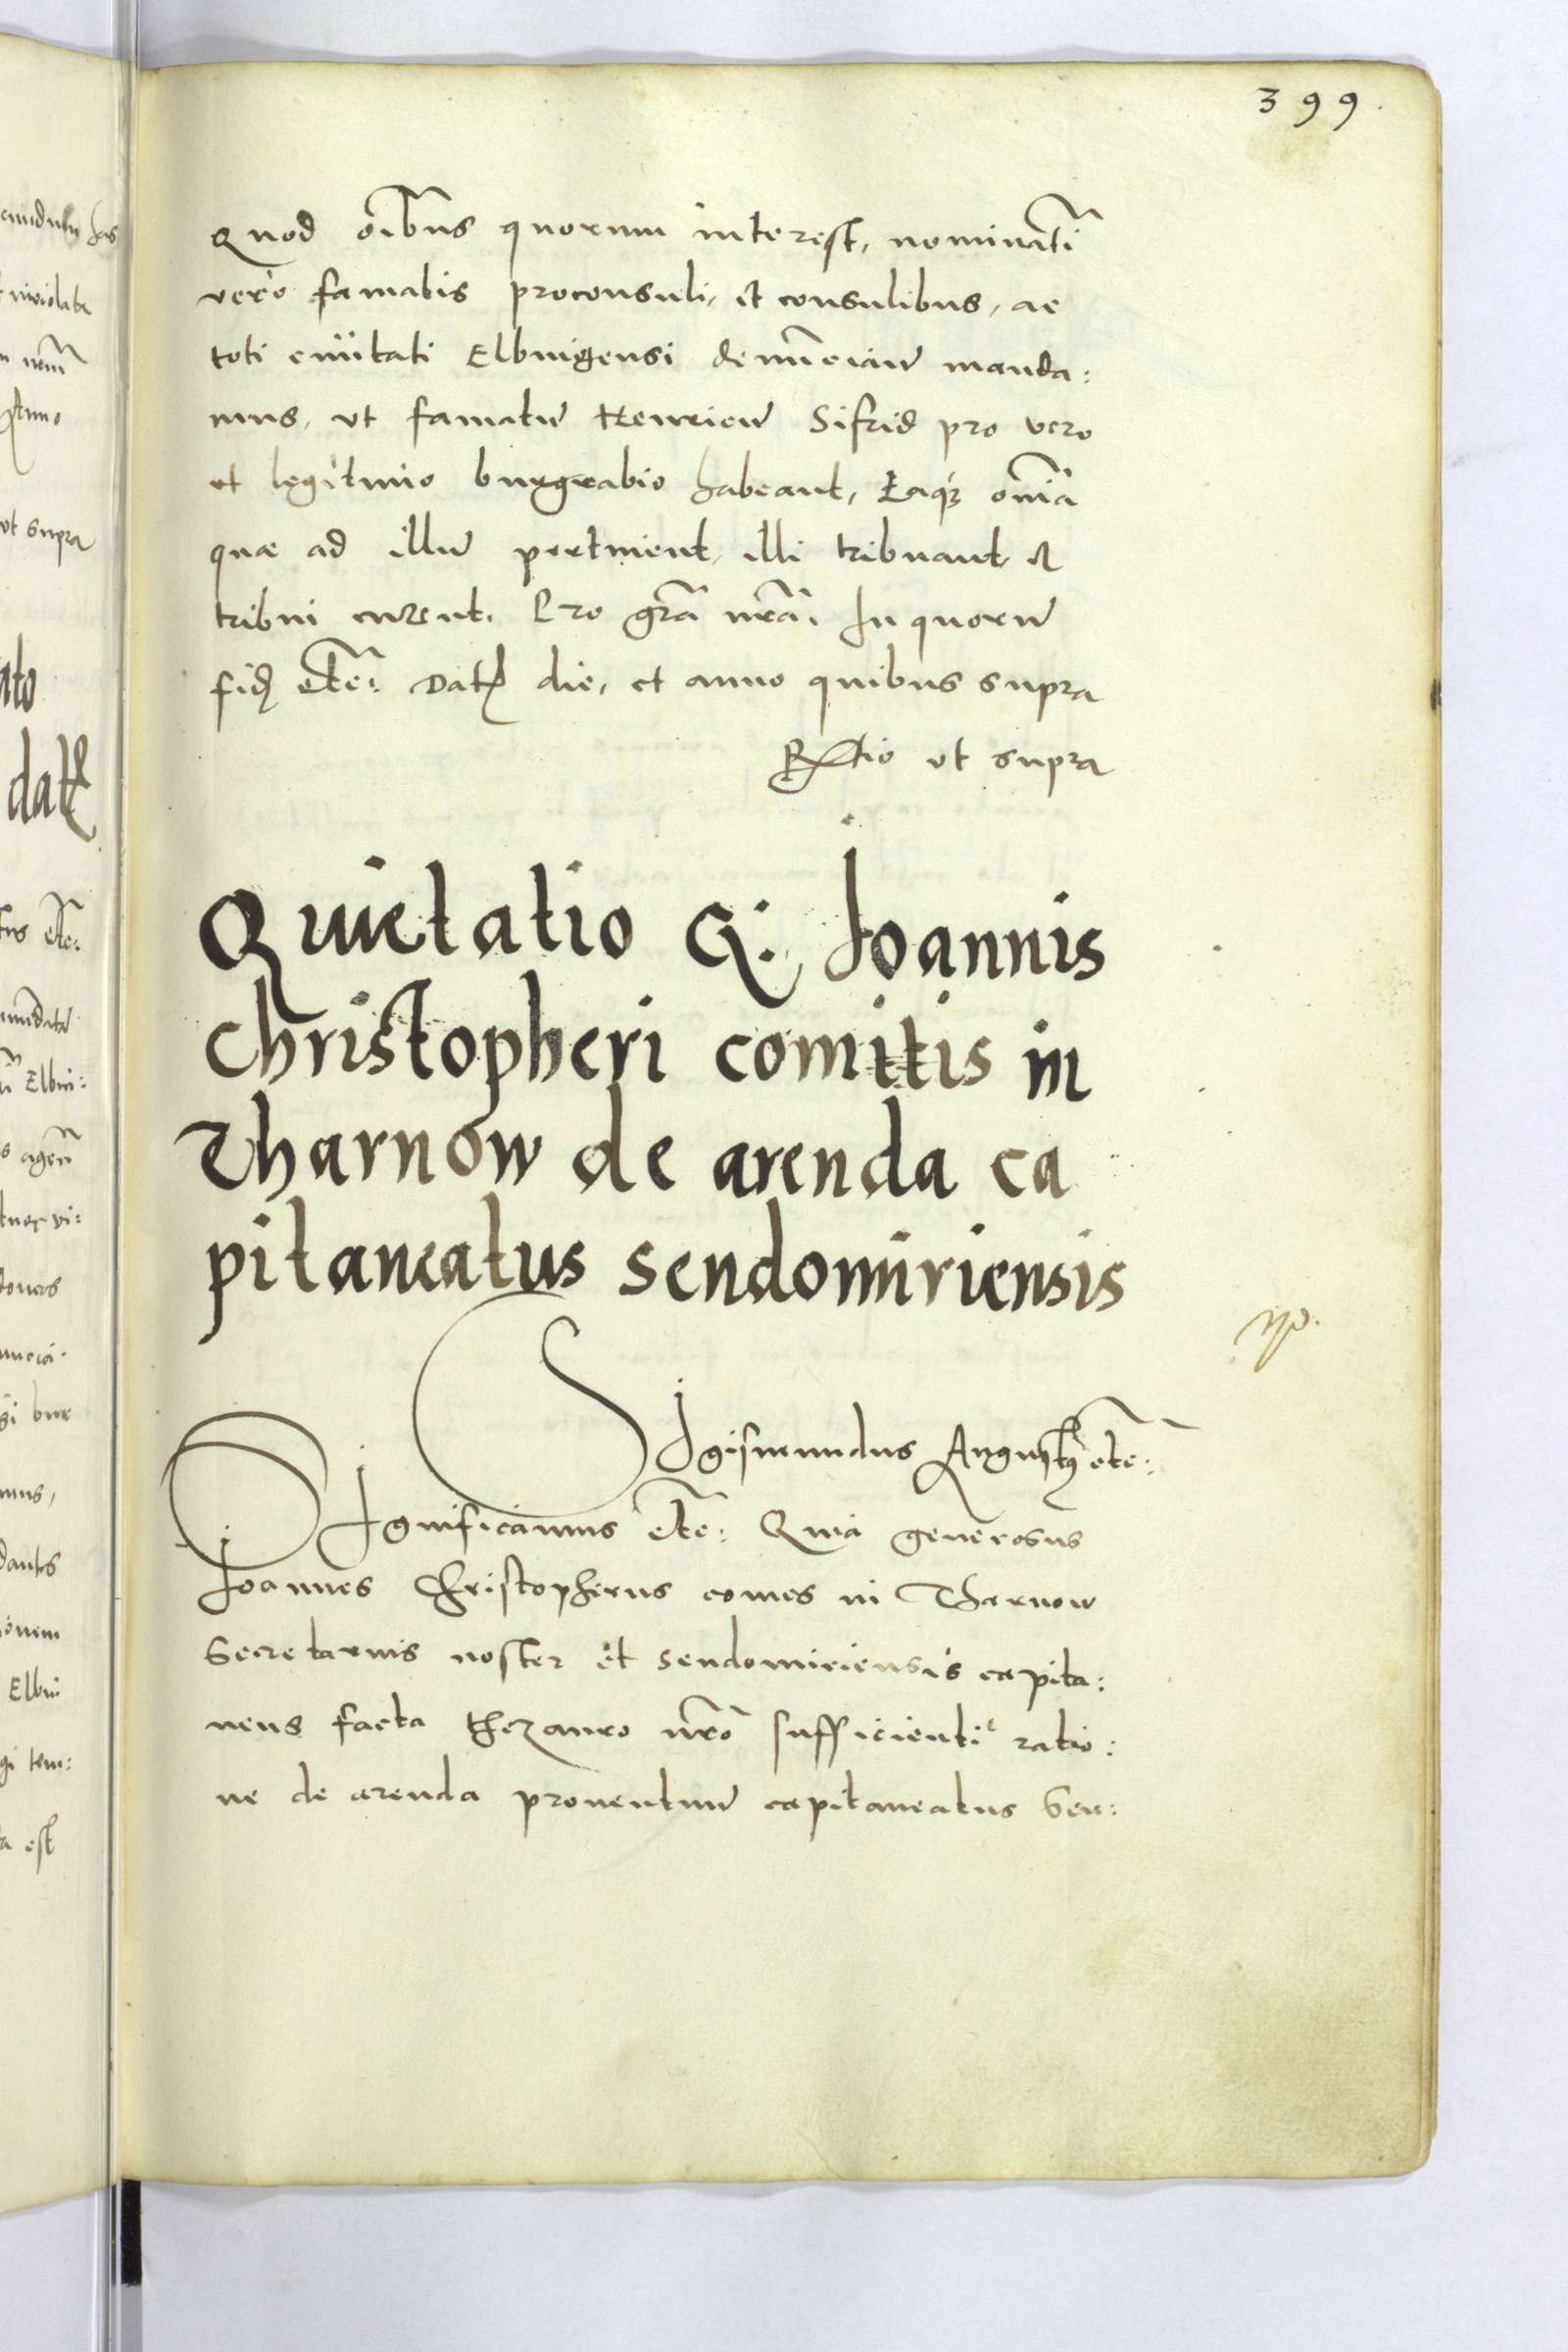 399.
Quod oib̃us quorum interest, nominati͂
vero famatis proconsuli, et consulibus, ac
toti ciuitati Elbingensi denu͂ciaẽ manda:
mus, vt famatũ Henricũ Sifrid pro vero
et legitimo burgrabio habeant, Eaq́ꝫ om̃ia
quæ ad illũ pertinent, illi tribuant et
tribui curent. Pro gr̃a nr̃a. In quorũ
fidẽ etc̃: Datũ die, et anno quibus supra
Rtio vt supra
Quietatio G: Ioannis
Christopheri comitis in
Tharnow de arenda ca
pitaneatus sendomiriensis
Sigismundus Augustꝰ etc̃:
Significamus etc̃: Quia generosus
Ioannes Christopherus comes in Tharnow
Secretarius noster et Sendomiriensis capita:
neus facta thezauro nr̃o sufficienti ratio:
ne de arenda prouentuũ capitaneatus Sen: